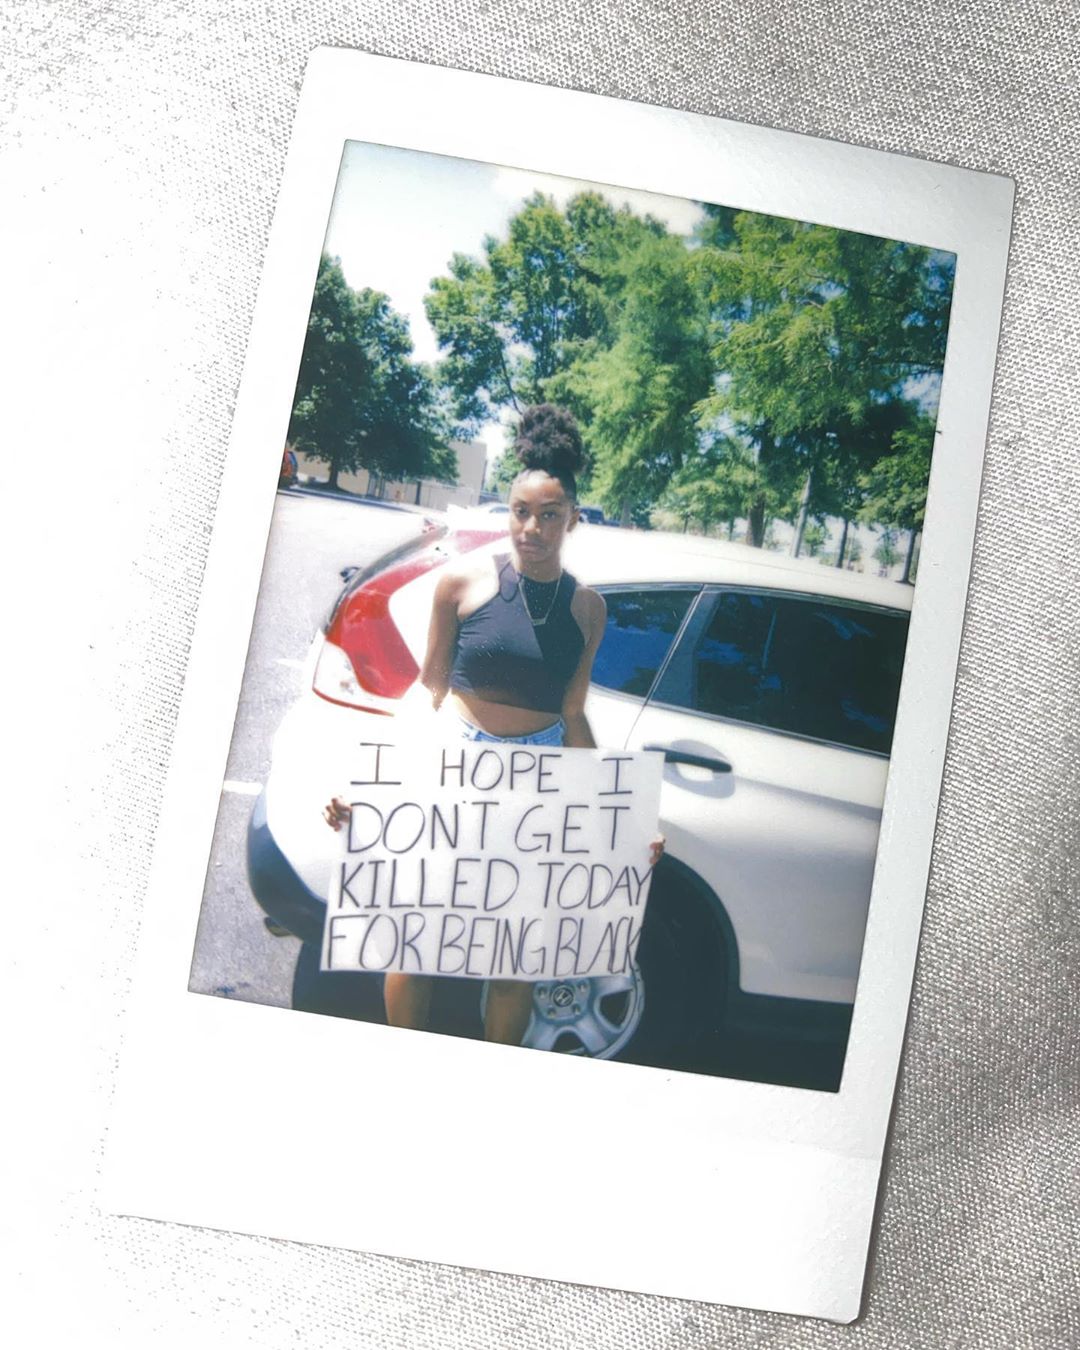 I HOPE I
DON'T GET
KILLED TODAY
FOR BEING BLACK